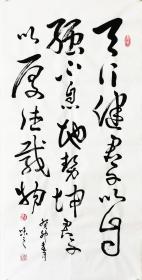 天行健君子以自
强不息地势坤君子
以厚德载物